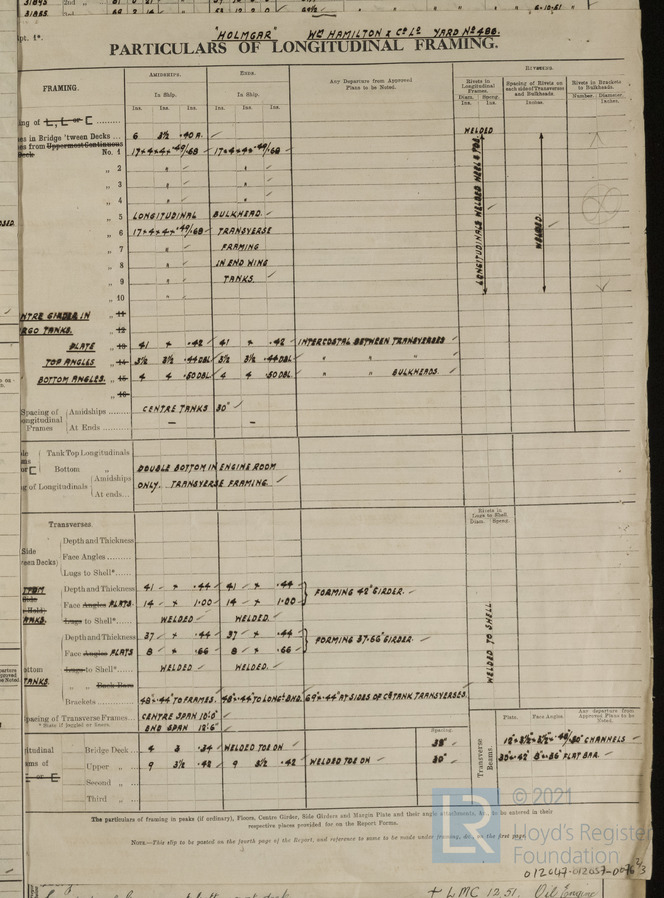 31845 2nd
31865 6-10-51
"HOLMGAR" Wm HAMILTON & Co Ld YARD No 488.
PARTICULARS OF LONGITUDINAL FRAMING.
FRAMING.
AMIDSHIPS.
ENDS.
Any Departure from Approved Plans to be Noted.
RIVETING.
In Ship.
In Ship.
Rivets in Longitudinal Frames.
Spacing of Rivets on each side of Transverses and Bulkheads.
Rivets in Brackets to Bulkheads.
Ins. Ins. Ins. Ins. Ins. Ins.
Diam. Spcng. Ins. Ins.
Inches.
Number. Diameter. Inches.
in Bridge 'tween Decks 6 3½ .40 A. WELDED
from Uppermost Continuous Deck No. 1 17×4×4×.49/.68 17×4×4×.49/.68
„ 2 " "
„ 3 " "
„ 4 " "
„ 5 LONGITUDINAL BULKHEAD.
„ 6 17×4×4×.49/.68 TRANSVERSE
„ 7 " FRAMING
„ 8 " IN END WING
„ 9 " TANKS.
„ 10 "
LONGITUDINALS WELDED HEEL & TOE.
WELDED.
NTRE GIRDER IN „ 11
RGO TANKS. „ 12
PLATE „ 13 41 × .42 41 × .42 INTERCOSTAL BETWEEN TRANSVERSES
TOP ANGLES „ 14 3½ 3½ .44 DBL 3½ 3½ .44 DBL " " "
BOTTOM ANGLES. „ 15 4 4 .50 DBL 4 4 .50 DBL " " BULKHEADS.
„ 16
Spacing of Longitudinal Frames
Amidships CENTRE TANKS 30"
At Ends – –
Tank Top Longitudinals
Bottom „ DOUBLE BOTTOM IN ENGINE ROOM
of Longitudinals Amidships ONLY. TRANSVERSE FRAMING.
At ends
Transverses.
Rivets in Lugs to Shell.
Diam. Spcng.
Side
een Decks)
Depth and Thickness
Face Angles
Lugs to Shell*
Depth and Thickness 41 × .44 41 × .44
FORMING 42" GIRDER.
Face Angles PLATS. 14 × 1.00 14 × 1.00
ANKS. Lugs to Shell* WELDED WELDED.
Depth and Thickness 37 × .44 37 × .44
FORMING 37.66" GIRDER.
Face Angles PLATS 8 × .66 8 × .66
ottom Lugs to Shell* WELDED WELDED.
WELDED TO SHELL
TANKS. „ „ Back Bars
Brackets 48"×.44 TO FRAMES. 48"×.44 TO LONGL BHD. 69"×.44 AT SIDES OF CR TANK TRANSVERSES.
Spacing of Transverse Frames CENTRE SPAN 10'0"
* State if joggled or liners. END SPAN 12'6"
Spacing.
Transverse Beams.
Plate. Face Angles. Any departure from Approved Plans to be Noted.
Bridge Deck 4 3 .34 WELDED TOE ON 38"
Upper „ 9 3½ .42 9 3½ .42 WELDED TOE ON 30"
Second „
Third „
CHANNELS
FLAT BAR.
The particulars of framing in peaks (if ordinary), Floors, Centre Girder, Side Girders and Margin Plate and their angle attachments, &c., to be entered in their
respective places provided for on the Report Forms.
NOTE.—This slip to be posted on the fourth page of the Report, and reference to same to be made under framing, &c., on the first page.
LR © 2021
Lloyd's Register
Foundation
012047-012057-0076 2/3
+ LMC 12.51. Oil Engine